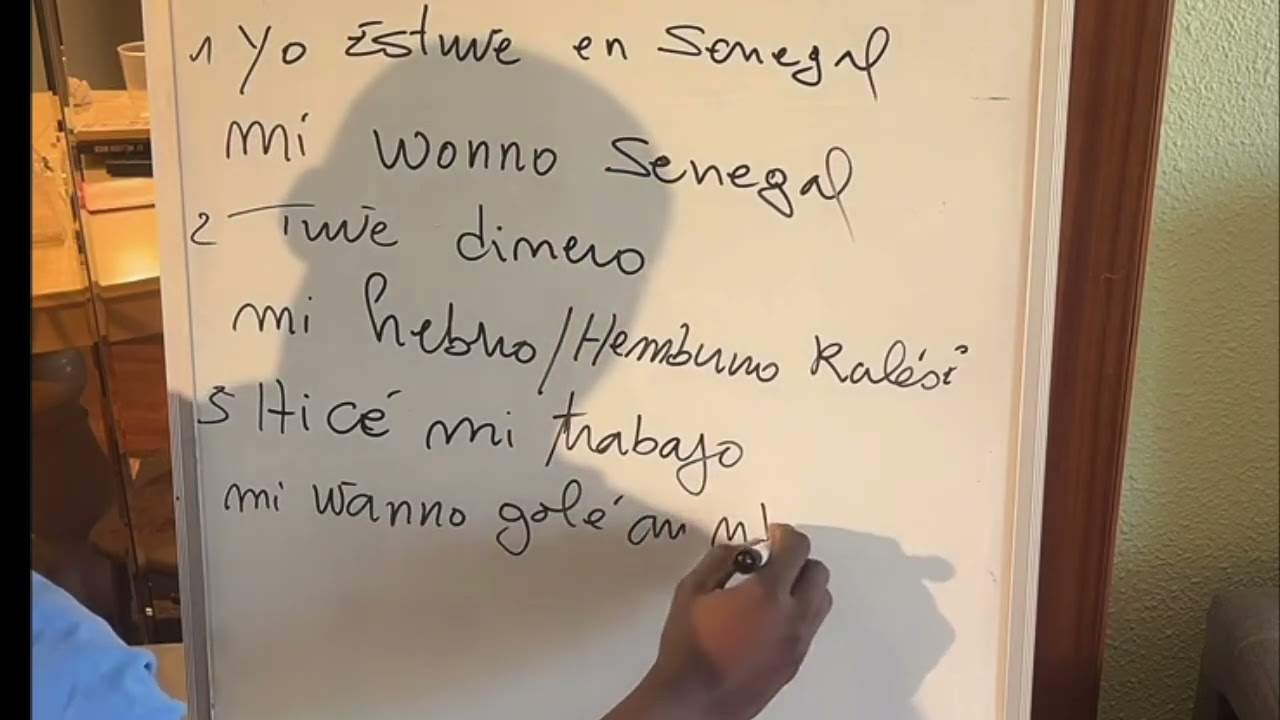 1 Yo Estuve en Senegal
mi wonno Senegal
2 Tuve dinero
mi hebno/Hembuno Kalési
3 Hicé mi trabajo
mi wanno golé an